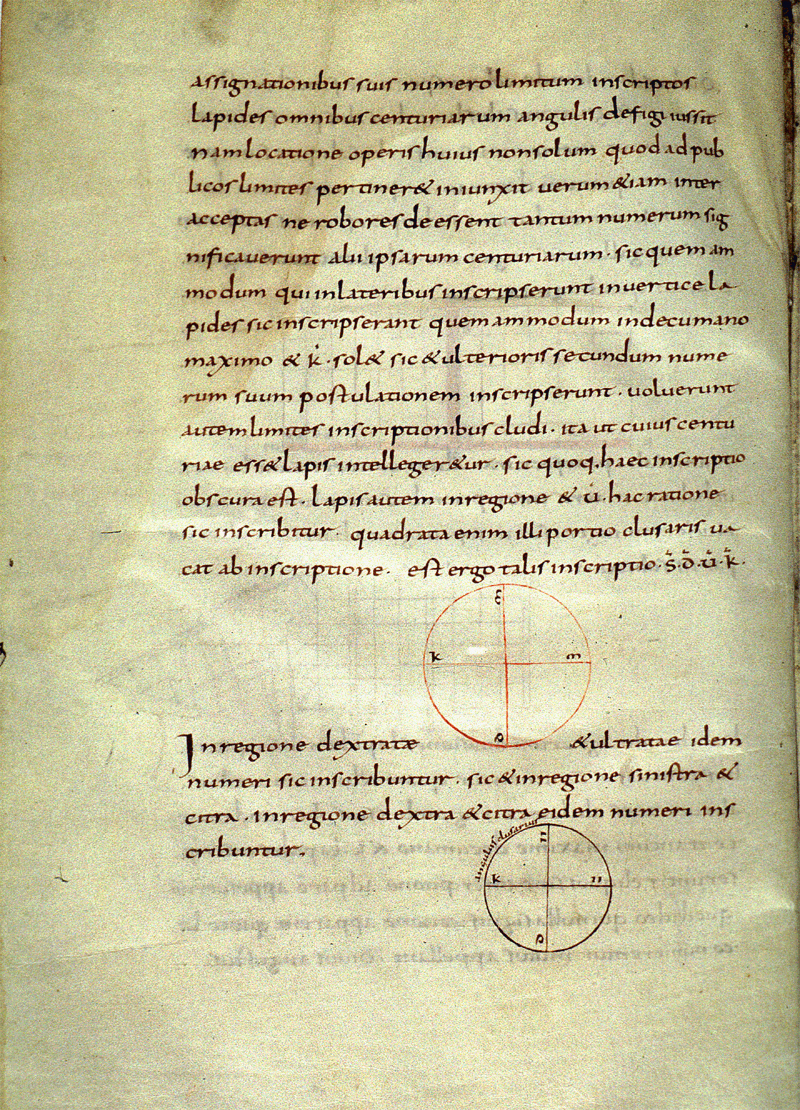 assignationibus suis numero limitum inscriptos
lapides omnibus centuriarum angulis defigi iussit
nam locatione operis huius non solum quod ad pub
licos limites pertiner& iniunxit uerum &iam inter
acceptas ne robores deessent tantum numerum sig
nificauerunt alii ipsarum centuriarum · sic quem am
modum qui in lateribus inscripserunt in uertice la
pides sic inscripserant quem ammodum in decumano
maximo & k̇ · sol& sic & ulterioris secundum nume
rum suum postulationem inscripserunt · uoluerunt
autem limites inscriptionibus cludi · ita ut cuius centu
riae ess& lapis intelleger&ur · sic quoq. haec inscriptio
obscura est · lapis autem in regione & u̇ · hac ratione
sic inscribitur · quadrata enim illi portio clusaris ua
cat ab inscriptione · est ergo talis inscriptio · s̄ · d̄ · ū · k̄ ·
k
In regione dextratae &ultratae idem
numeri sic inscribuntur · sic & in regione sinistra &
citra · in regione dextra & citra eidem numeri ins
cribuntur.
angulus clusaris
II
k II